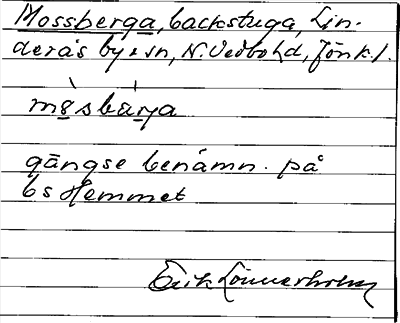 Mossberga, backstuga, Lin-
derås by & sn, N. Vedbo hd, Jönk. l.
mɵsbarya
gängse benämn. på
bs Hemmet
Erik Lönnerholm